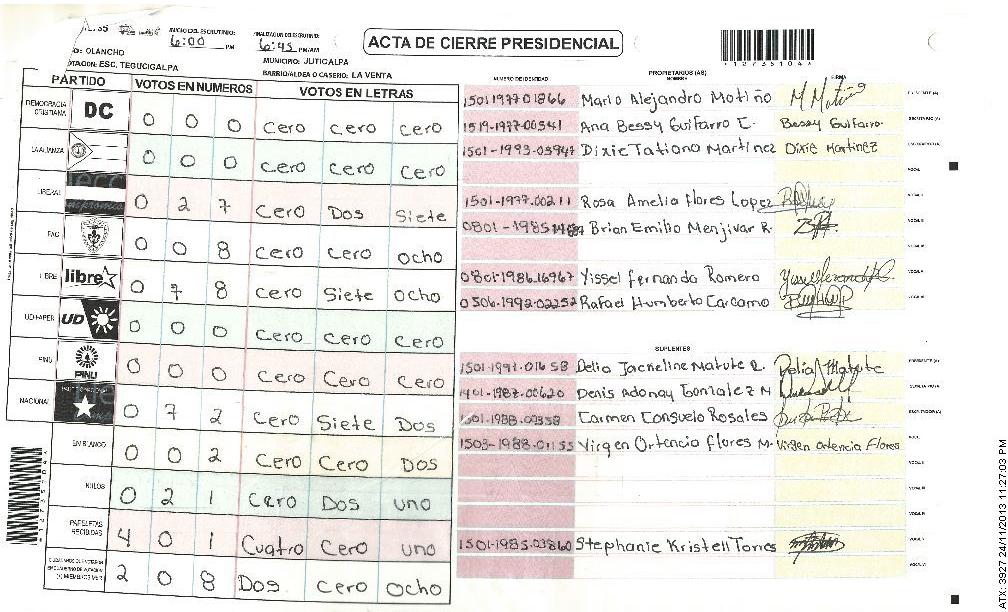 INICIO DEL ESCRUTINIO: 6:00 PM
FINALIZACION DEL ESCRUTINIO: 6:45 PM/AM
ACTA DE CIERRE PRESIDENCIAL
OLANCHO
MUNICIPIO: JUTICALPA
ESC. TEGUCIGALPA
BARRIO/ALDEA O CASERIO: LA VENTA
PARTIDO VOTOS EN NUMEROS VOTOS EN LETRAS
DEMOCRACIA CRISTIANA DC 0 0 0 Cero cero cero
LA ALIANZA 0 0 0 cero cero cero
LIBERAL 0 2 7 Cero Dos Siete
PAC 0 0 8 Cero Cero ocho
LIBRE libre 0 7 8 cero Siete ocho
UD FAPER UD 0 0 0 Cero cero Cero
PINU PINU 0 0 0 Cero Cero Cero
NACIONAL 0 7 2 Cero Siete Dos
EN BLANCO 0 0 2 Cero Cero DOS
NULOS 0 2 1 Cero Dos uno
PAPELETAS RECIBIDAS 4 0 1 Cuatro Cero uno
2 0 8 Dos cero ocho
PROPIETARIOS (AS)
NUMERO DE IDENTIDAD NOMBRE FIRMA
1501197701866 Mario Alejandro Motiño M Motiño
1519-1977-00541 Ana Bessy Guifarro C. Bessy Guifarro
1501-1993-03947 Dixie Tatiana Martinez Dixie Martinez
1501-1977-00211 Rosa Amelia flores Lopez
Brian Emilio Menjivar R.
0801-1986-16967 Yissel fernanda Romero
0506-1992-02252 Rafael Humberto Carcamo
SUPLENTES
1501-1991-01658 Delia Jackeline Matute R. Delia Matute
1401-1987-00620 Denis Adonay Gonzalez M
1501-1988-00358 Carmen Consuelo Rosales
1503-1988-01155 Virgen Ortencia flores M. Virgen ortencia Flores
1501-1985-03860 Stephanie Kristell Torres
ATX: 3927 24/11/2013 11:27:03 PM